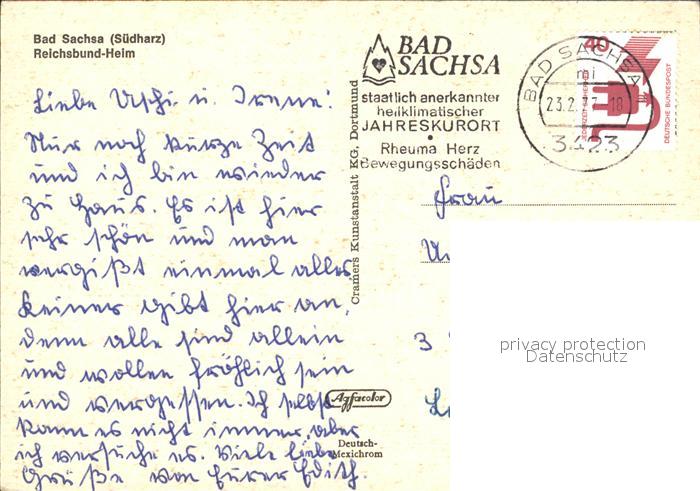 Bad Sachsa (Südharz)
Reichsbund-Heim
Liebe Uschi u. Irene!
Nur noch kurze Zeit
und ich bin wieder
zu Haus. Es ist hier
sehr schön und man
vergißt einmal alles.
Keiner gibt hier an,
denn alle sind allein
und wollen fröhlich sein
und vergessen. Ich selbst
kann es nicht immer, aber
ich versuche es. Viele liebe
Grüße von Eurer Edith.
Cramers Kunstanstalt KG, Dortmund
Agfacolor
Deutsch-
Mexichrom
BAD
SACHSA
staatlich anerkannter
heilklimatischer
JAHRESKURORT
Rheuma Herz
Bewegungsschäden
BAD SACHSA
mi
23.2.77-18
3423
40
DEUTSCHE BUNDESPOST
Frau
3
privacy protection
Datenschutz